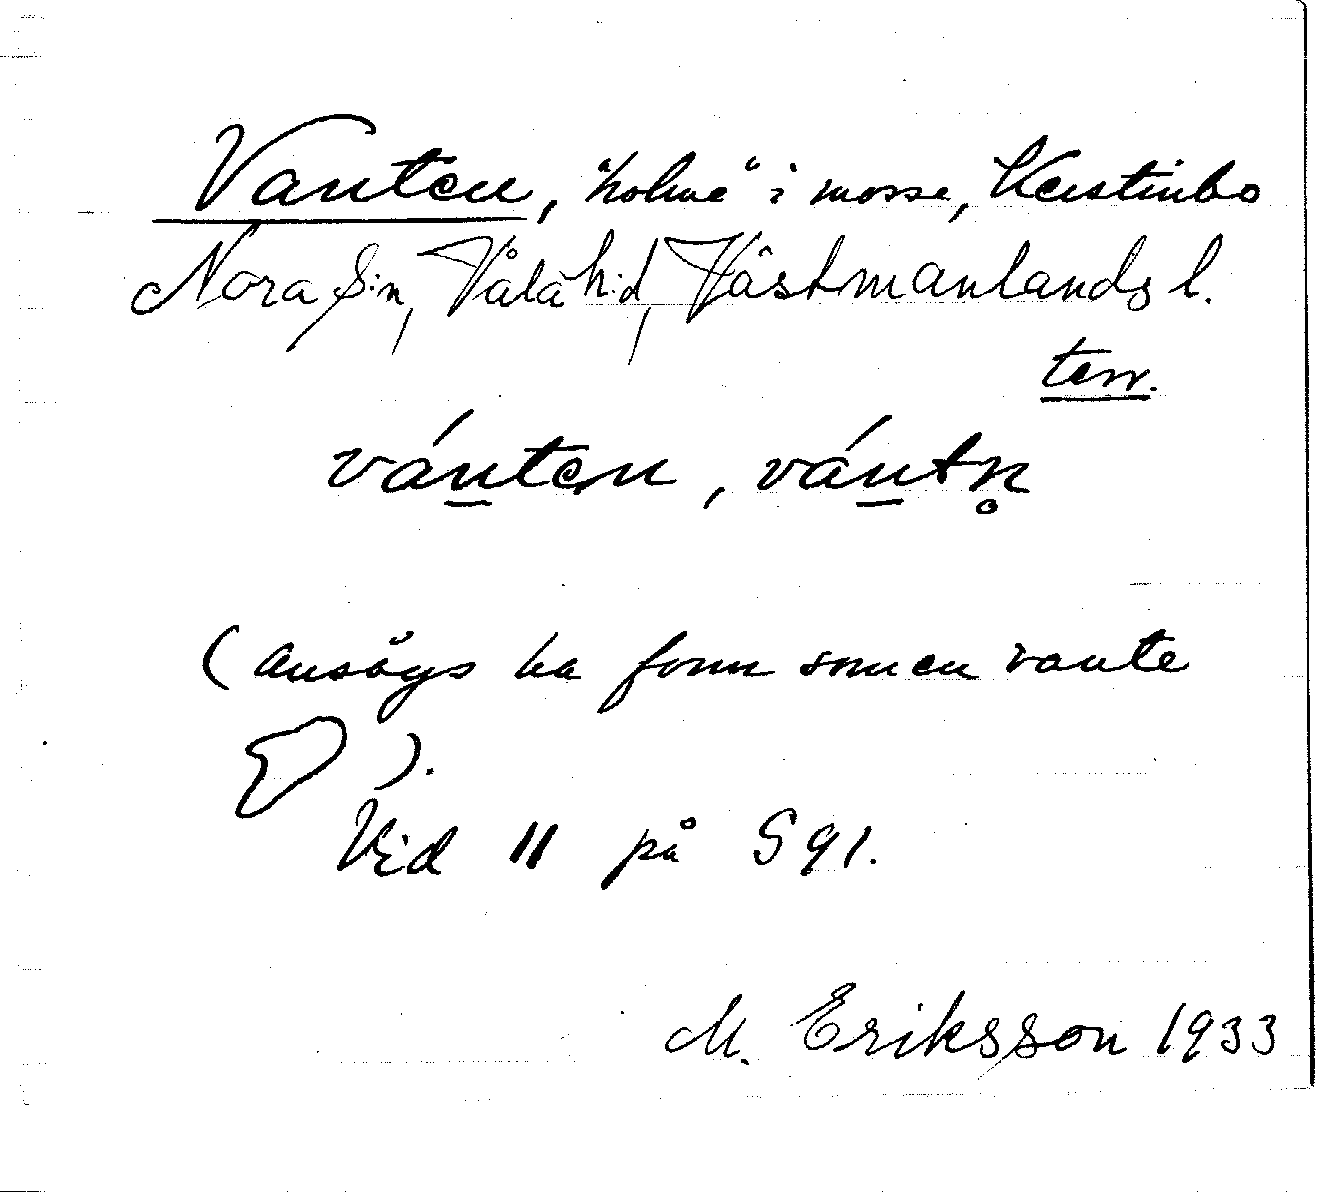 Vanten, "holme" i mosse, Kerstinbo
Nora S:n, Våla h:d, Västmanlands l.
terr.
vánten, vántn̥
(Ansågs ha form som en vante
).
Vid 11 på S 91.
M. Eriksson 1933